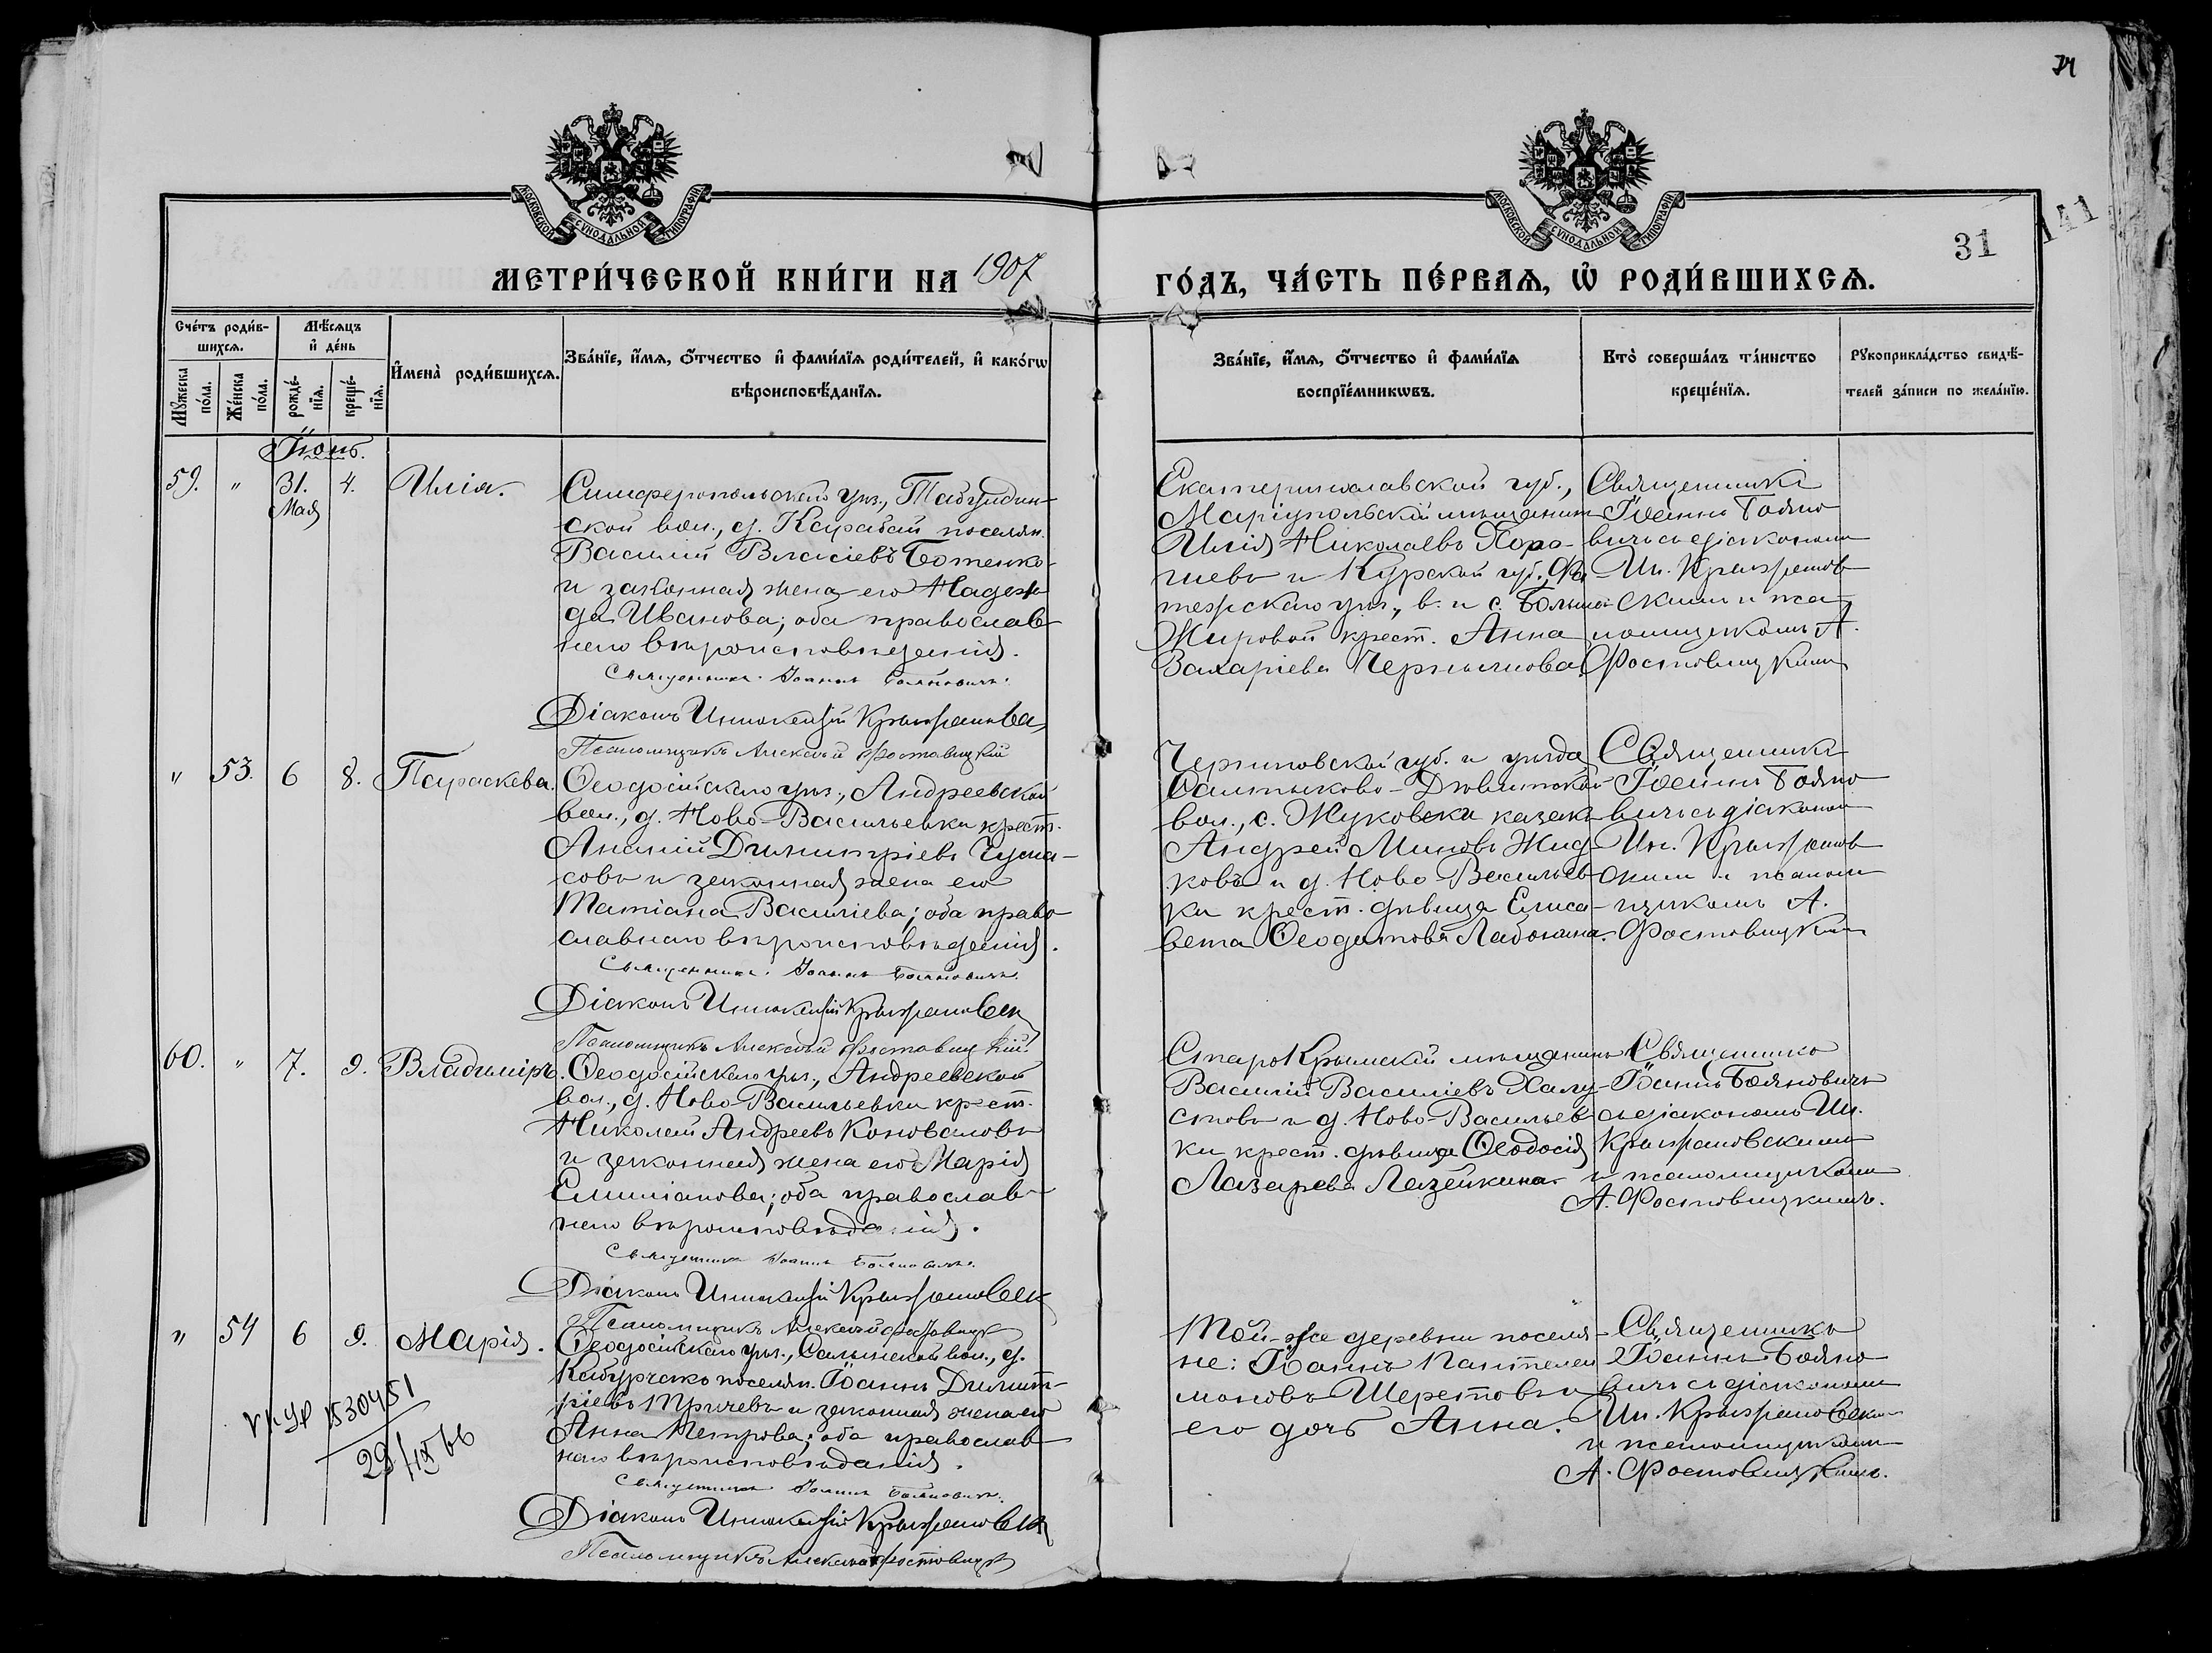 74
МОСКОВСКОЙ СѴНОДАЛЬНОЙ ТИПОГРАФІИ
МОСКОВСКОЙ СѴНОДАЛЬНОЙ ТИПОГРАФІИ
31
141
МЕТРИ́ЧЕСКОЙ КНИ́ГИ НА 1907
ГО́ДЪ, ЧА́СТЬ ПЕ́РВАѦ, Ѡ҆ РОДИ́ВШИХСѦ.
Сче́тъ роди́в-
шихсѧ.
Мꙋ́жеска
по́ла.
Же́нска
по́ла.
Мѣ́сѧцъ
и҆ де́нь
рожде́-
нїѧ.
креще́-
нїѧ.
И҆мена̀ роди́вшихсѧ.
Зва́нїе, и҆́мѧ, ѻ҆́тчество и҆ фами́лїѧ роди́телей, и҆ како́гѡ
вѣроисповѣ́данїѧ.
Зва́нїе, и҆́мѧ, ѻ҆́тчество и҆ фами́лїѧ
воспрїе́мникѡвъ.
Кто̀ соверша́лъ та́инство
креще́нїѧ.
Рꙋкоприкла́дство свидѣ́-
телей за́писи по жела́нїю.
Іюнь.
59. " 31. 4. Илія.
Мая
Симферопольскаго уѣз., Табулдин-
ской вол., д. Карабай поселян.
Василій Власіевъ Ботенко
и законная жена его Надеж-
да Иванова; оба православ-
наго вѣроисповѣданія.
Священникъ Іоаннъ Бояновичъ.
Діаконъ Иннокентій Крыжановск
Псаломщикъ Алексѣй Фостовицкій
Екатеринославской губ.,
Маріупольскій мѣщанинъ
Илія Николаевъ
и Курской губ., Фа-
тежскаго уѣз., в. и с. Больше-
Жировой крест. Анна
Захаріева
Священникъ
Іоаннъ Бояно-
вичъ съ діакономъ
Ин. Крыжанов-
скимъ и пса-
ломщикомъ А.
Фостовицкимъ
" 53. 6 8. Параскева.
Ѳеодосійскаго уѣз., Андреевской
вол., д. Ново-Васильевки крест.
Ананій Димитріевъ
и законная жена его
Татіана Василіева; оба право-
славнаго вѣроисповѣданія.
Священникъ Іоаннъ Бояновичъ.
Діаконъ Иннокентій Крыжановск
Псаломщикъ Алексѣй Фостовицкій
Черниговской губ. и уѣзда
Салтыково-Дѣвицкой
вол., с. Жуковки казакъ
Андрей Миновъ Жид-
ковъ и д. Ново-Васильев-
ки крест. дѣвица Елиса-
вета Ѳеодотова
Священникъ
Іоаннъ Бояно-
вичъ съ діакономъ
Ин. Крыжанов-
скимъ и псалом-
щикомъ А.
Фостовицкимъ
60. " 7. 9. Владиміръ.
Ѳеодосійскаго уѣз., Андреевской
вол., д. Ново-Васильевки крест.
Николай Андреевъ Коноваловъ
и законная жена его Марія
Емиліанова; оба православ-
наго вѣроисповѣданія.
Священникъ Іоаннъ Бояновичъ.
Діаконъ Иннокентій Крыжановск
Псаломщикъ Алексѣй Фостовицк
СтароКрымскій мѣщанинъ
Василій Василіевъ Халу-
стовъ и д. Ново-Васильев-
ки крест. дѣвица Ѳеодосія
Лазарева Лазейкина
Священникъ
Іоаннъ Бояновичъ
съ діакономъ Ин.
Крыжановскимъ
и псаломщикомъ
А. Фостовицкимъ.
" 54 6 9. Марія.
Ѳеодосійскаго уѣз., Салынской вол., д.
поселян. Іоаннъ Димит-
ріевъ и законная жена его
Анна Петрова; оба православ-
наго вѣроисповѣданія.
Священникъ Іоаннъ Бояновичъ.
Діаконъ Иннокентій Крыжановск
Псаломщикъ Алексѣй Фостовицк
Той-же деревни поселя-
не: Іоаннъ Пантелей-
моновъ Шерстовъ и
его дочь Анна.
Священникъ
Іоаннъ Бояно-
вичъ съ діакономъ
Ин. Крыжановским
и псаломщикомъ
А. Фостовицкимъ.
1530451
29/IX 66